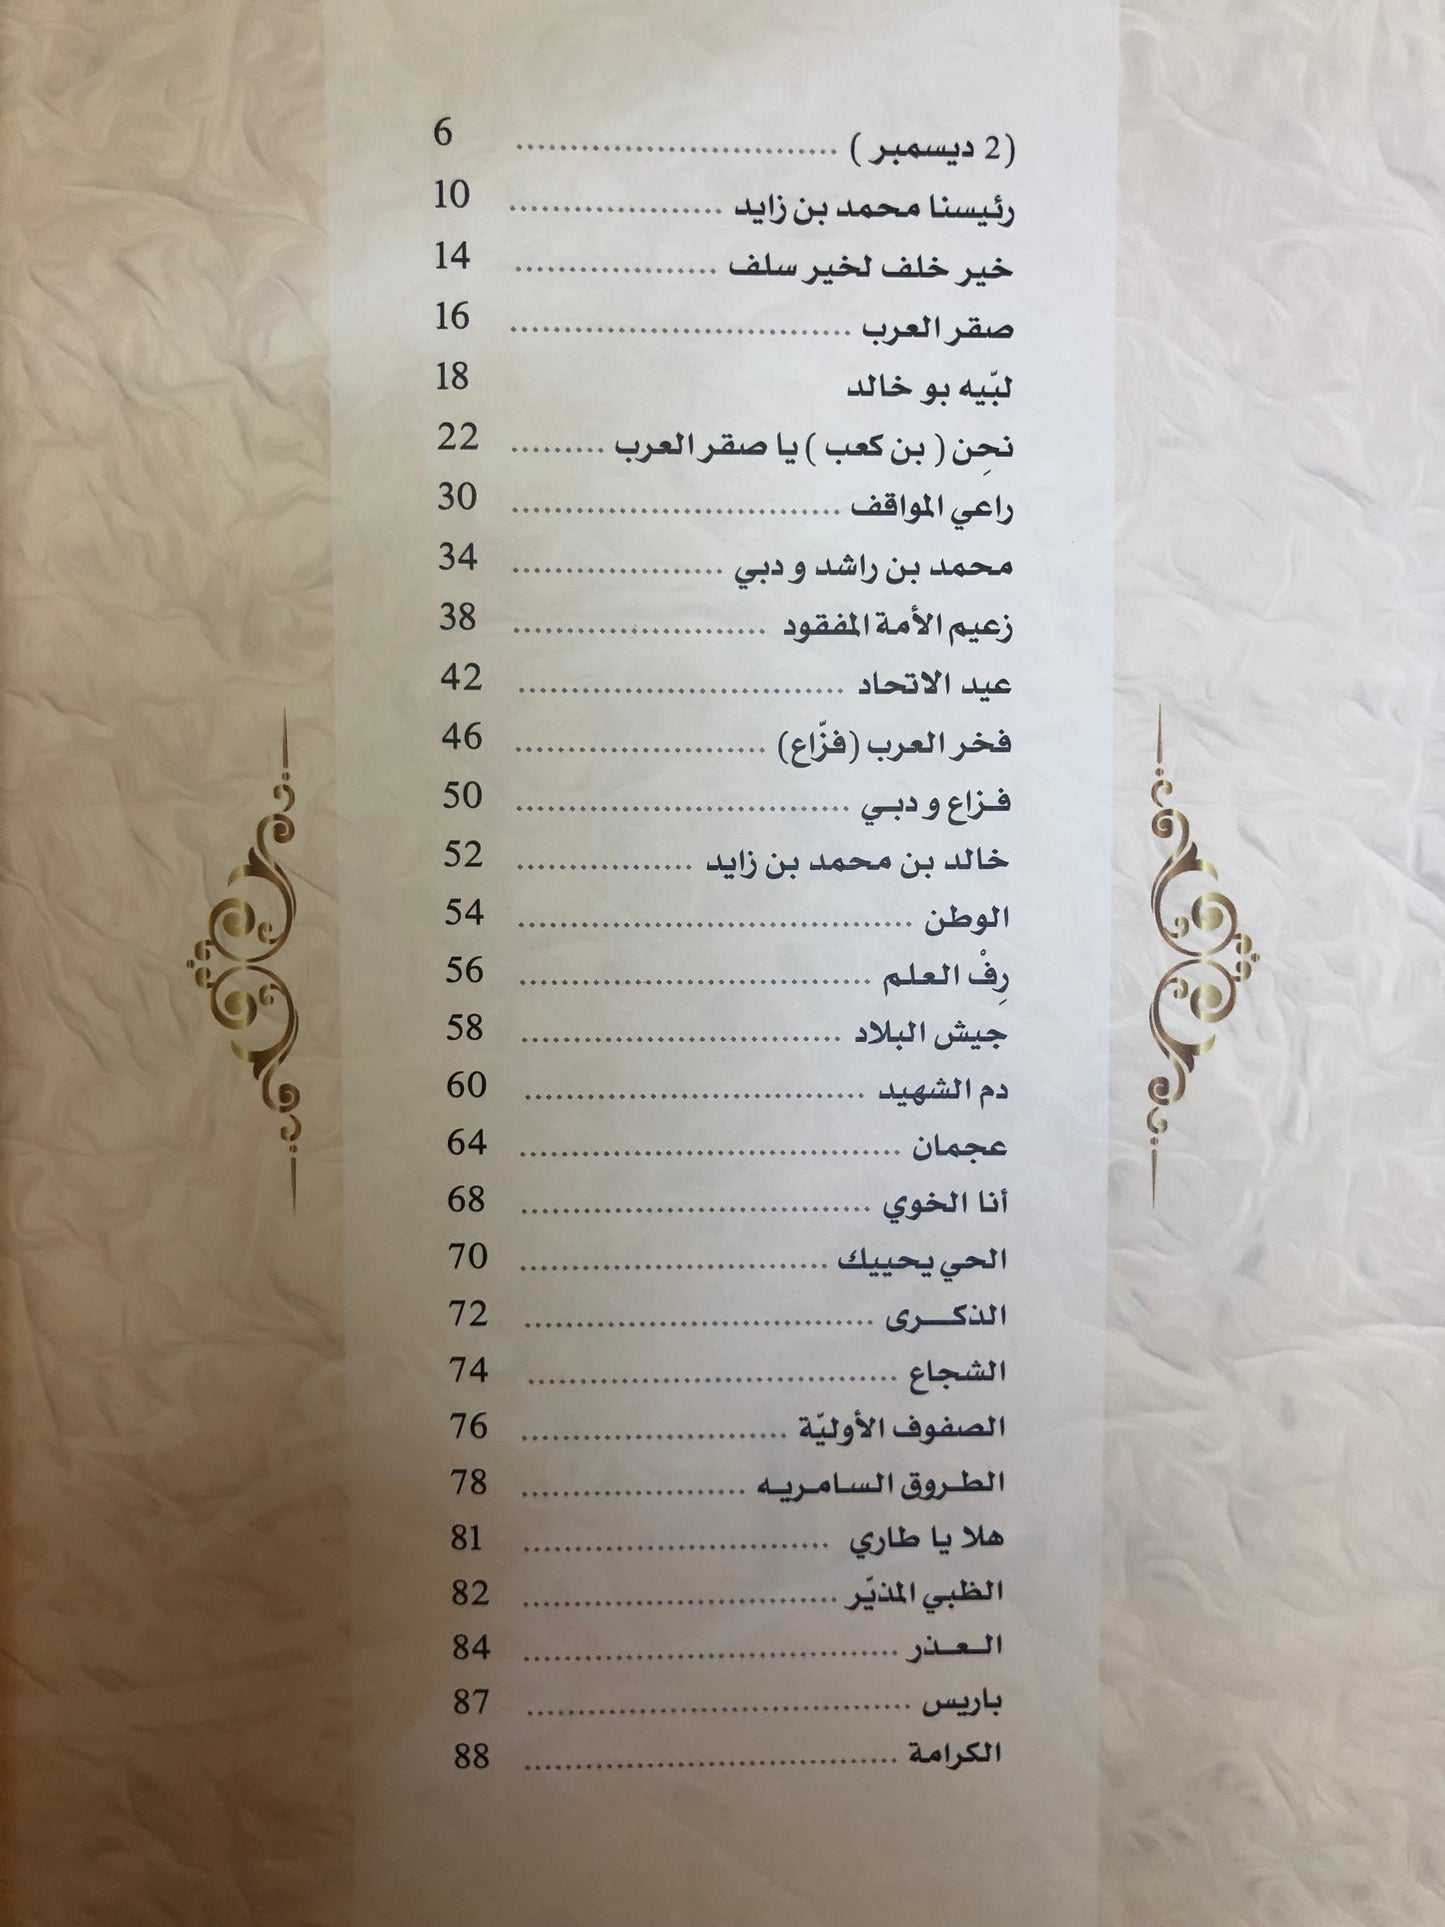 (2 ديسمبر ) ................................ 6
رئيسنا محمد بن زايد ..................... 10
خير خلف لخير سلف .................... 14
صقر العرب ................................. 16
لبّيه بو خالد 18
نحِن ( بن كعب ) يا صقر العرب ......... 22
راعي المواقف ................................ 30
محمد بن راشد و دبي ..................... 34
زعيم الأمة المفقود ......................... 38
عيد الاتحاد ................................ 42
فخر العرب (فزّاع) ........................ 46
فـزاع و دبـي ................................ 50
خالد بن محمد بن زايد ................. 52
الوطن ...................................... 54
رِفْ العلم .................................. 56
جيش البلاد ............................... 58
دم الشهيد ................................. 60
عجمان ..................................... 64
أنا الخوي .................................. 68
الحي يحييك .............................. 70
الذكــــرى .................................. 72
الشجاع .................................... 74
الصفوف الأوليّة .......................... 76
الطـروق السـامـريـه ...................... 78
هلا يا طاري .............................. 81
الظبي المذيّر .............................. 82
الـعـذر .................................... 84
باريس ..................................... 87
الكرامة .................................... 88